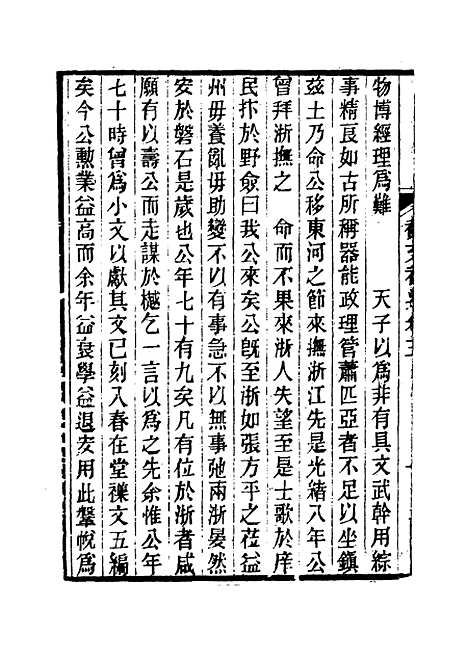 物博經理爲難　　天子以爲非有具文武幹用綜
事精良如古所稱器能政理管蕭匹亞者不足以坐鎭
茲土乃命公移東河之節來撫浙江先是光緒八年公
曾拜浙撫之　命而不果來浙人失望至是士歌於庠
民抃於野僉曰我公來矣公旣至浙如張方平之莅益
州毋養亂毋助變不以有事急不以無事弛兩浙晏然
安於磐石是歲也公年七十有九矣凡有位於浙者咸
願有以壽公而走謀於樾乞一言以爲之先余惟公年
七十時曾爲小文以獻其文已刻入春在堂襍文五編
矣今公勳業益高而余年益衰學益退安用此鞶帨爲